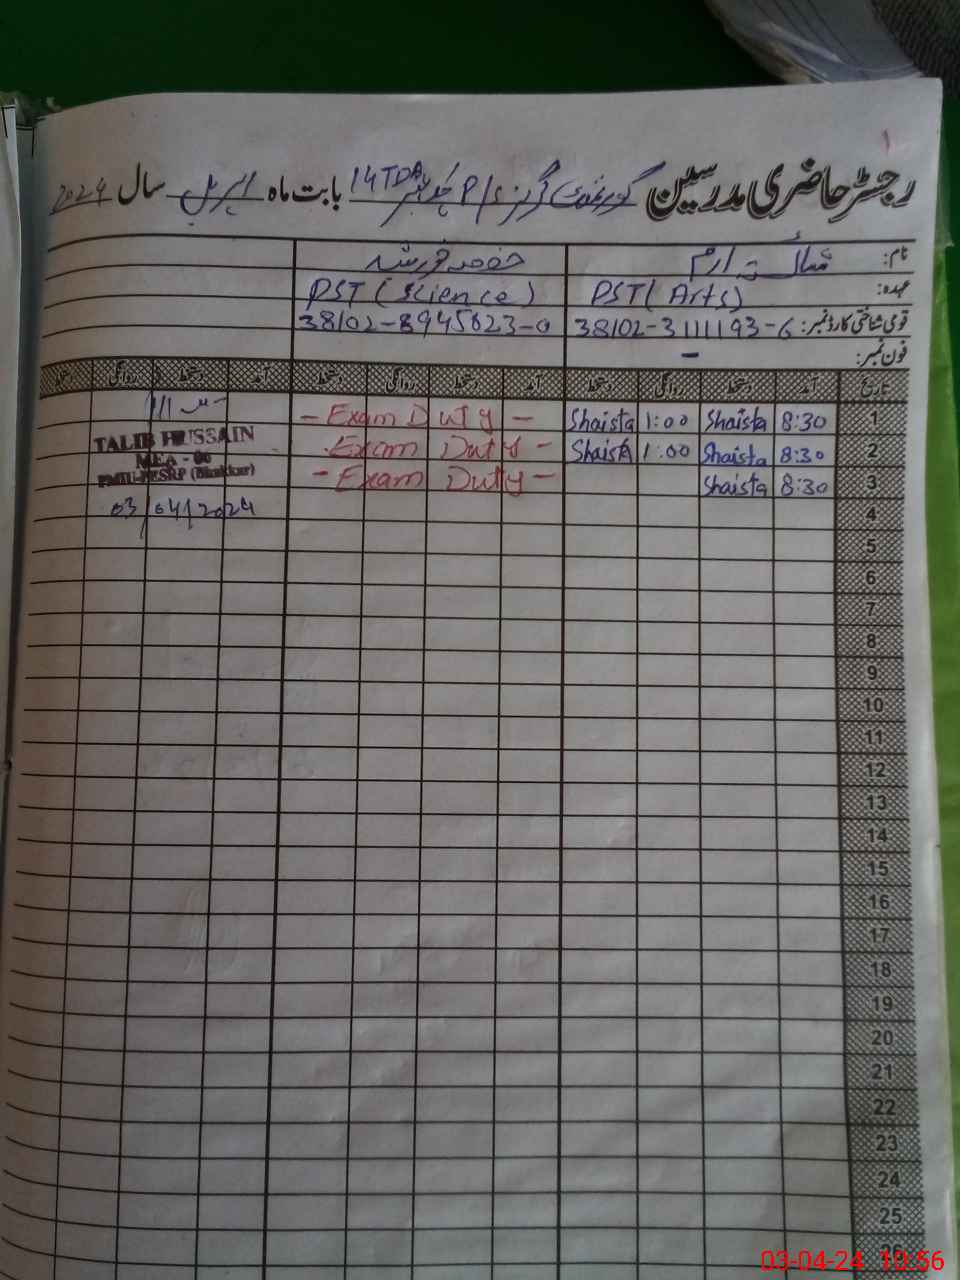 ۱
رجسٹر حاضری مدرسین گورنمنٹ گرلز P/S چک نمبر 14TDA بابت ماہ اپریل سال 2024
نام: شائستہ ارم
عہدہ: PST (Arts) PST (Science)
قومی شناختی کارڈ نمبر: 38102-3111193-6 38102-8945823-0
فون نمبر: -
تاریخ آمد دستخط روانگی دستخط آمد دستخط روانگی دستخط آمد دستخط روانگی دستخط
1 8:30 Shaista 1:00 Shaista - Exam Duty -
2 8:30 Shaista 1:00 Shaista Exam Duty -
3 8:30 Shaista - Exam Duty -
TALIB HUSSAIN
MEA - 06
PMIU-PESRP (Bhakkar)
03/04/2024
4
5
6
7
8
9
10
11
12
13
14
15
16
17
18
19
20
21
22
23
24
25
26
03-04-24 10:56